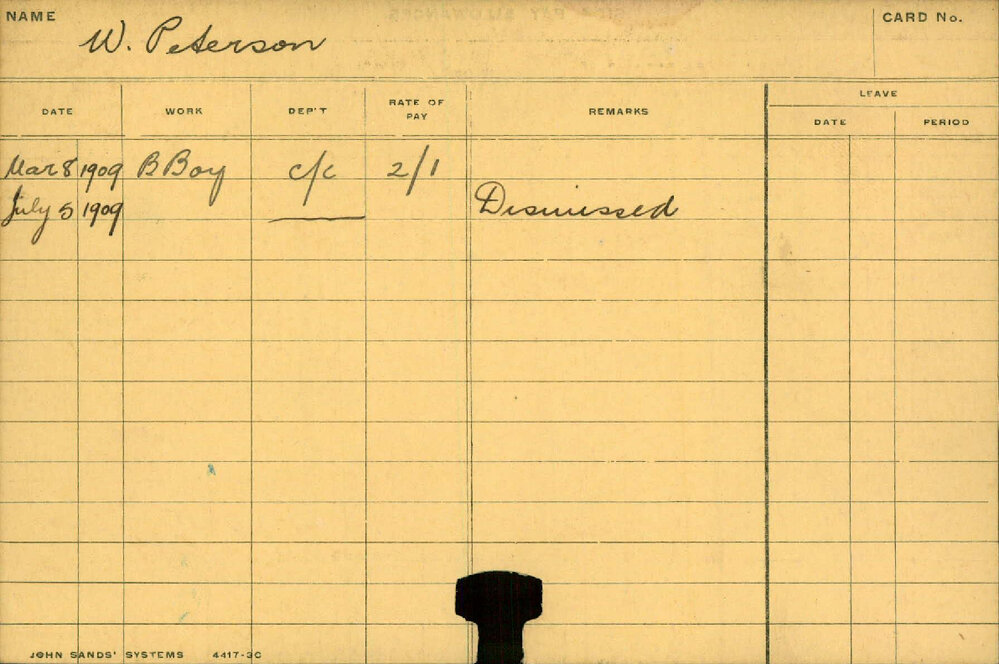 NAME W. Peterson CARD No.
DATE WORK DEP'T RATE OF PAY REMARKS LEAVE
DATE PERIOD
Mar 8 1909 B Boy c/c 2/1
July 5 1909 Dismissed
JOHN SANDS' SYSTEMS 4417-3C